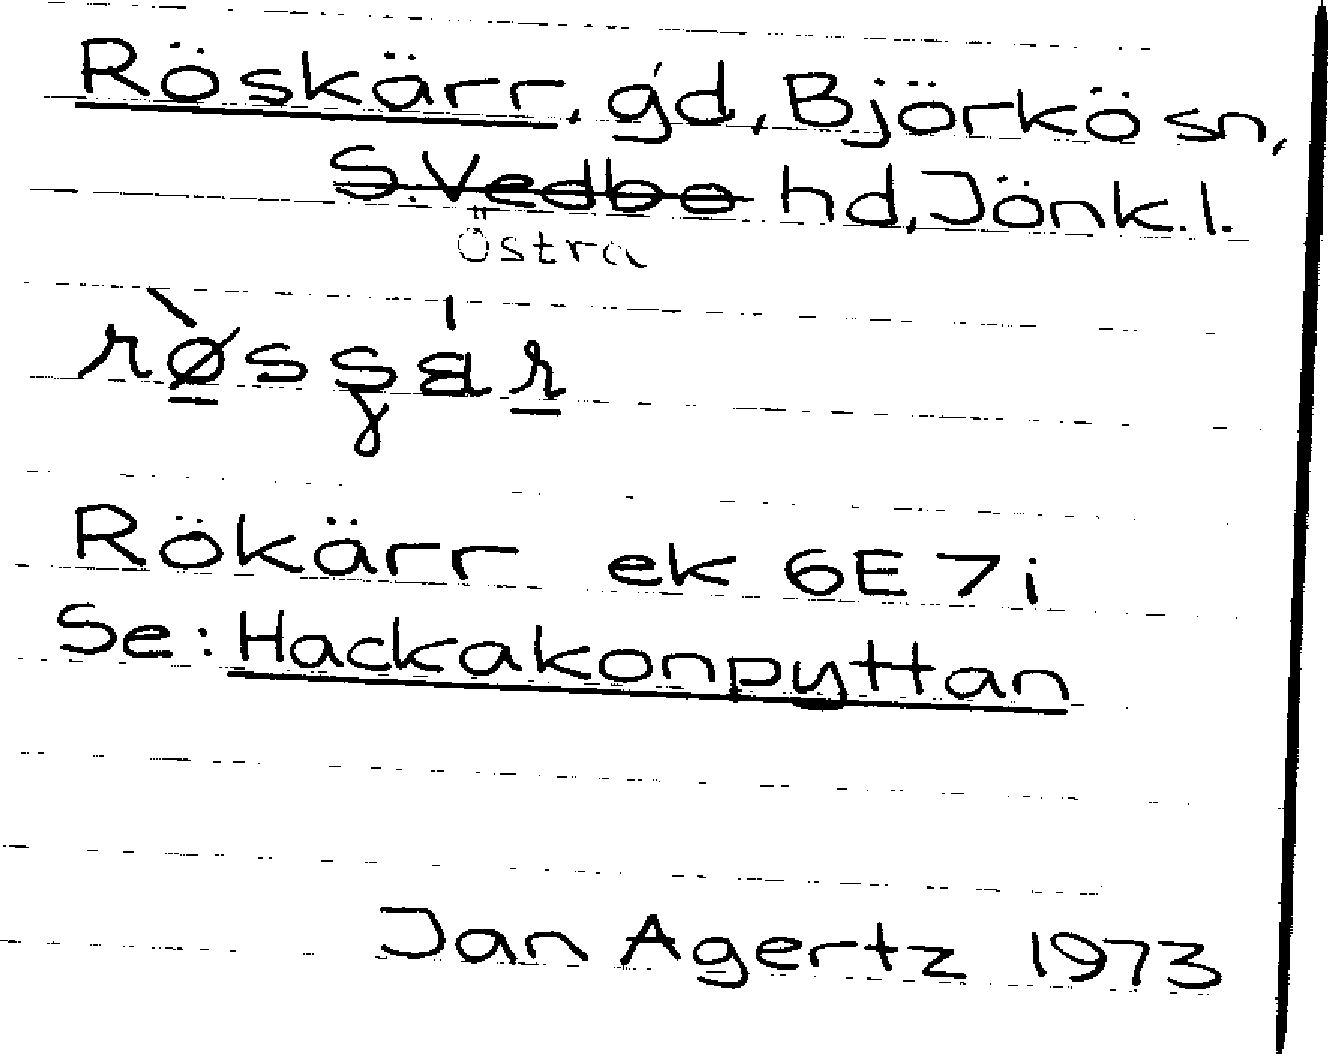 Röskärr, gd, Björkö sn,
S. Vedbo hd, Jönk. l.
Östra
Rökärr ek 6E7i
Se: Hackakonpyttan
Jan Agertz 1973